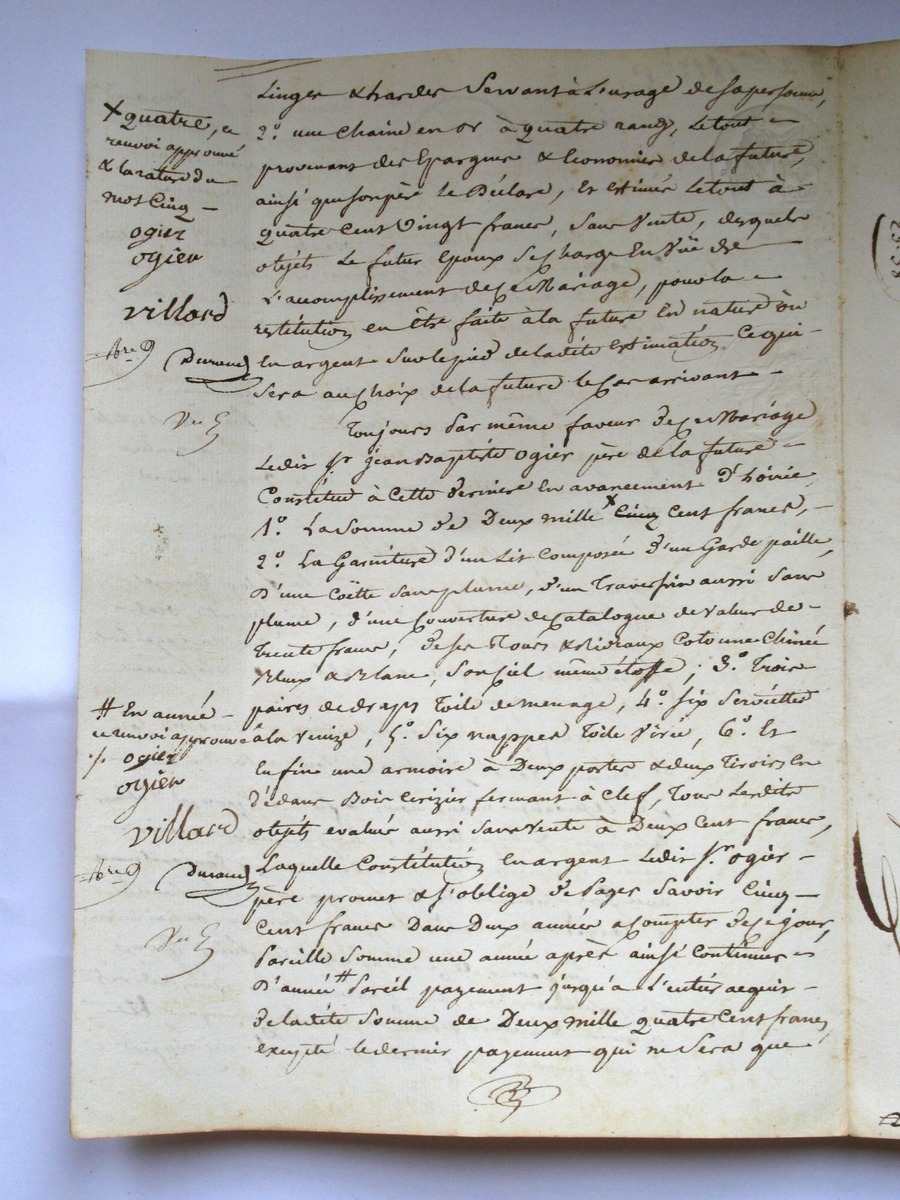 X quatre, ce
renvoi approuvé
& la rature du
mot Cinq –
ogier
ogier
villard
Durand
Linges & hardes Servant à L'usage de Sa personne,
2.° une Chaine en or à quatre rangs, Le tout =
provenant des Epargnes & Economies de la future,
ainsi que Son père le Déclare, Et Estimés Le tout à
quatre Cent Vingt francs, Sans Vente, desquels
objets Le futur Epoux Se Charge En Vüe de
L'accomplissement de Ce Mariage, pour la =
restitution en Être faite à la future En nature ou
En argent Sur le pied de la dite Estimation Ce qui –
Sera au Choix de la future le Cas arrivant –
Toujours Par même faveur de Ce Mariage
Ledit Sr. Jean Baptiste Ogier père de la future –
Constitue à Cette Derniere En avancement D'hoirie
1.° La Somme de Deux mille X Cinq Cent francs, –
2.° La Garniture d'un Lit Composée D'un Garde paille,
D'une Coëtte Sans plume, d'un Traversin aussi Sans
plume, d'une Couverture de Catalogne de Valeur de –
trente francs, de Ses Tours & Rideaux Cotonne Chinée
Bleux & Blanc, Son Ciel même étoffe ; 3.° Trois
paires de draps Toile de menage, 4.° Six Serviettes
à la Venize, 5.° Six nappes Toile Virée, 6.° Et
Enfin une armoire à Deux portes & deux Tiroirs En
Dedans Bois Cerizier fermant à Clef, Tous Lesdits
objets evalués aussi Sans Vente à Deux Cent francs,
Laquelle Constitution En argent Ledit Sr. ogier –
père promet & S'oblige De Payer Savoir Cinq –
Cent francs Dans Deux années a Compter de Ce jour,
Pareille Somme une année après ainsi Continuer =
D'année # Pareil payement jusqu'a L'entier acquit –
De la dite Somme de Deux mille quatre Cent francs,
excepté le dernier payement qui ne Sera que
# En année –
ce renvoi approuvé
./. ogier
ogier
villard
Durand